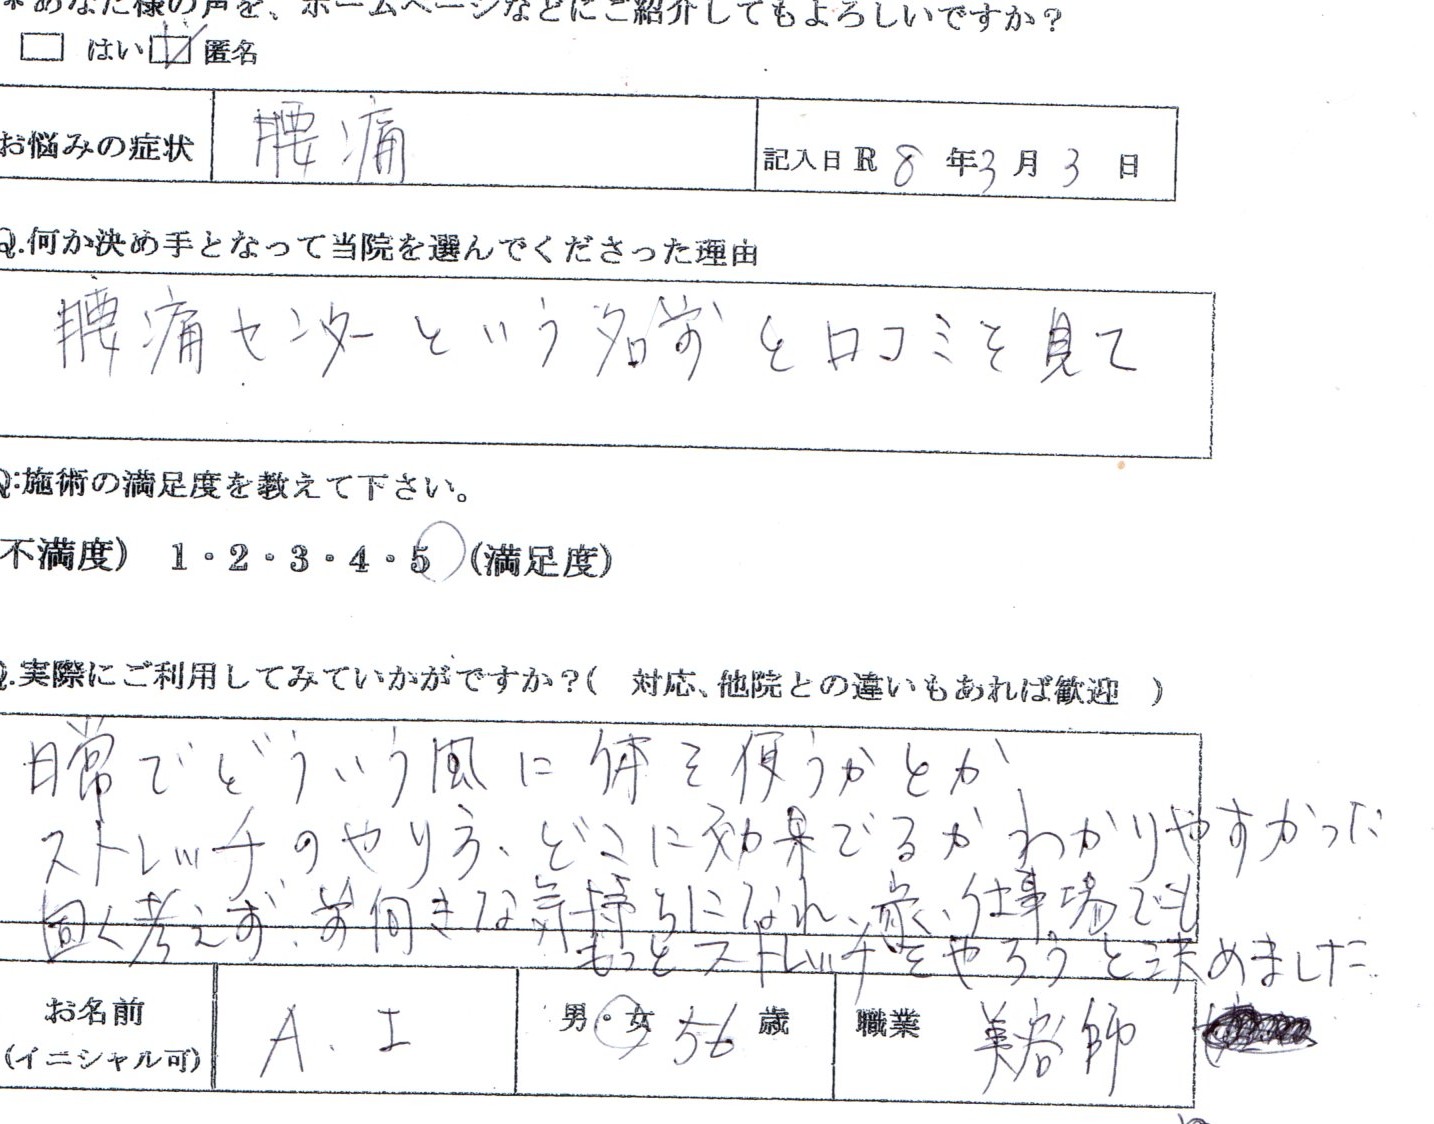 *あなた様の声を、ホームページなどにご紹介してもよろしいですか?
はい 匿名
お悩みの症状 腰痛 記入日 R 8 年 3 月 3 日
Q.何か決め手となって当院を選んでくださった理由
腰痛センターという名前と口コミを見て
Q:施術の満足度を教えて下さい。
不満度) 1・2・3・4・5 (満足度)
Q.実際にご利用してみていかがですか?( 対応、他院との違いもあれば歓迎 )
日常でどういう風に体を使うかとか
ストレッチのやり方、どこに効果でるかわかりやすかった
固く考えず、前向きな気持ちになれ、家、仕事場でも
もっとストレッチをやろうと決めました
お名前 (イニシャル可) A.I 男・女 56 歳 職業 美容師